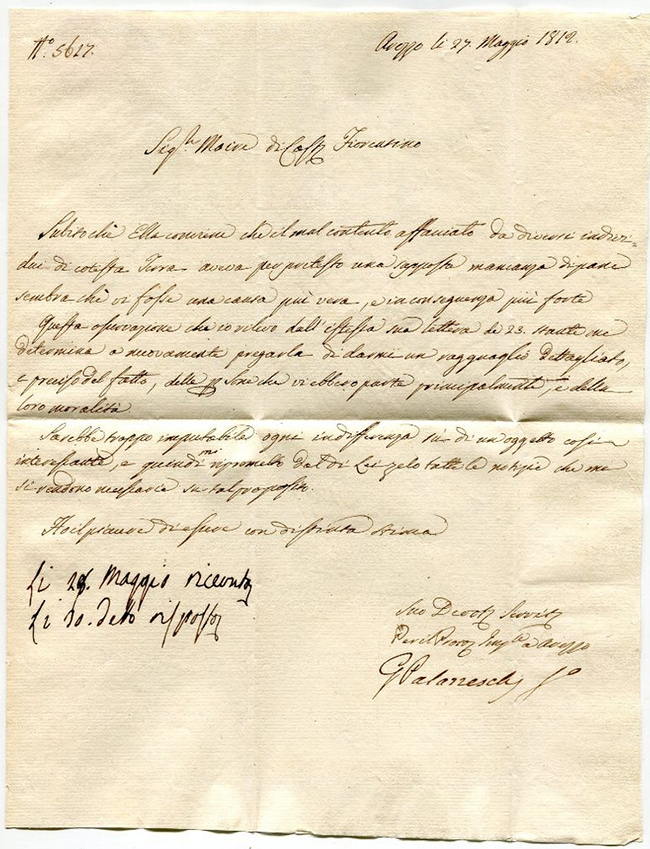 N.º 5617.
Arezzo li 27. Maggio 1812.
Sig.re Maire di Cast Fiorentino
Subito chè Ella conviene che il mal contento affacciato da diversi indivi-
dui di cotesta Terra aveva per pretesto una supposta mancanza di pane
sembra chè vi fosse una causa più vera, e in conseguenza più forte
Questa osservazione che io rilevo dall'istessa sua lettera de 23. stante me
determina a nuovamente pregarla di darmi un ragguaglio dettagliato,
e preciso del fatto, delle psone che vi ebbero parte principalmente, e della
loro moralità.
Sarebbe troppo imputabile ogni indifferenza sù di un oggetto così
interessante, e quindi mi riprometto dal di Lei zelo tutte le notizie che me
si rendono necessarie su tal proposito.
Ho il piacere di essere con distinta stima
Li 28. Maggio ricevuta
Li 30. detto risposto
Suo Devot Servit
Per il Proc Imp.le a Arezzo